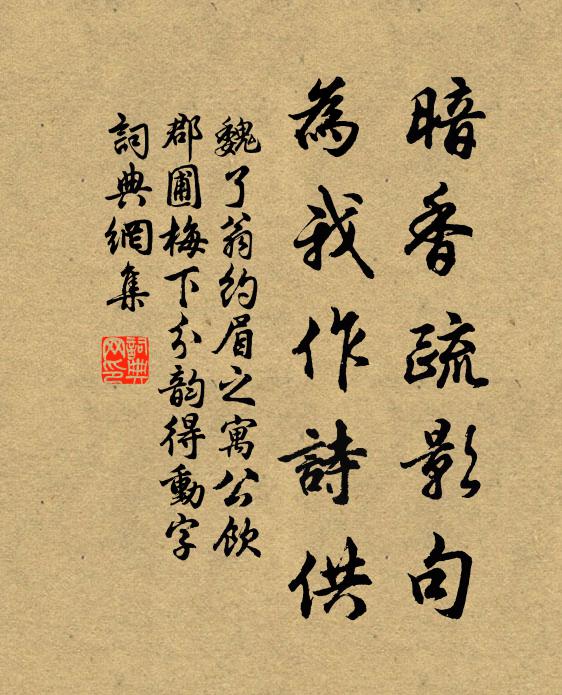 暗香疏影句
為我作詩供
魏了翁約眉之寓公飲
郡圃梅下分韵得動字
詞典網集
詞典
网印